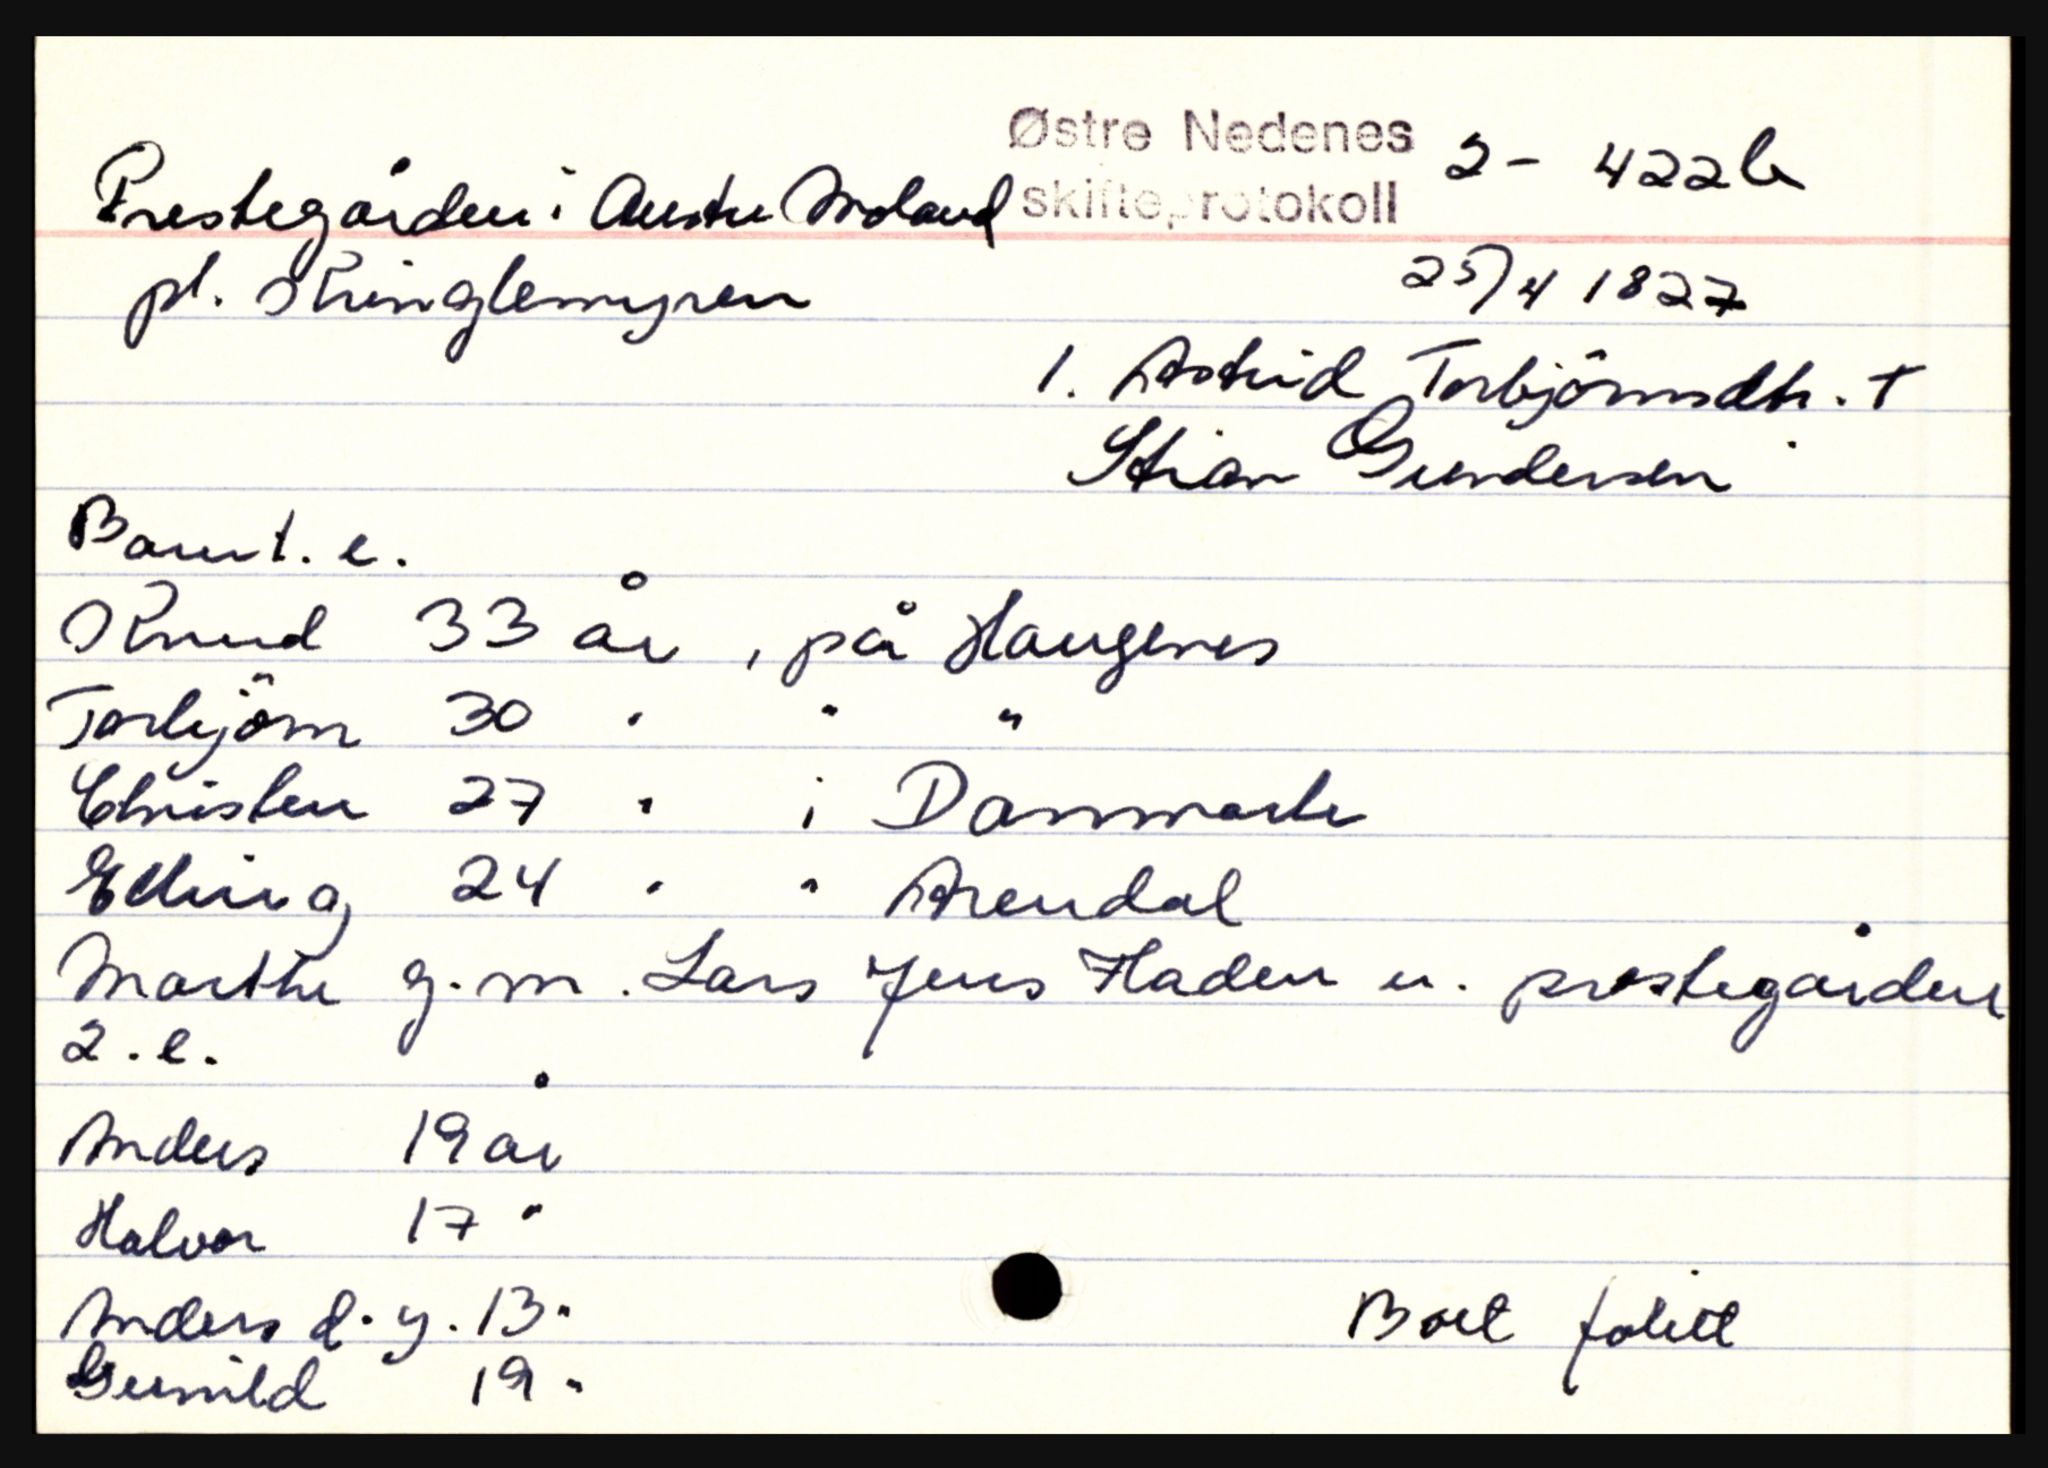 Østre Nedenes 2 - 422b
Prestegården i Austre Moland skifteprotokoll
pl. Kringlemyren 25/4 1827
1. Astrid Torbjörnsdtr. †
Stian Gundersen
Barn 1. e.
Knud 33 år, på Haugenes
Torbjörn 30 " " "
Christen 27 " i Danmark
Elling 24 " " Arendal
Marthe g. m. Lars Jens Haden u. prestegården
2. e.
Anders 19 år
Halvor 17 "
Anders d. y. 13 " Boet falitt
Gunild 19 "